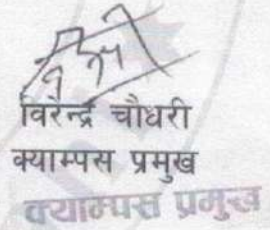 विरेन्द्र चौधरी
क्याम्पस प्रमुख
क्याम्पस प्रमुख